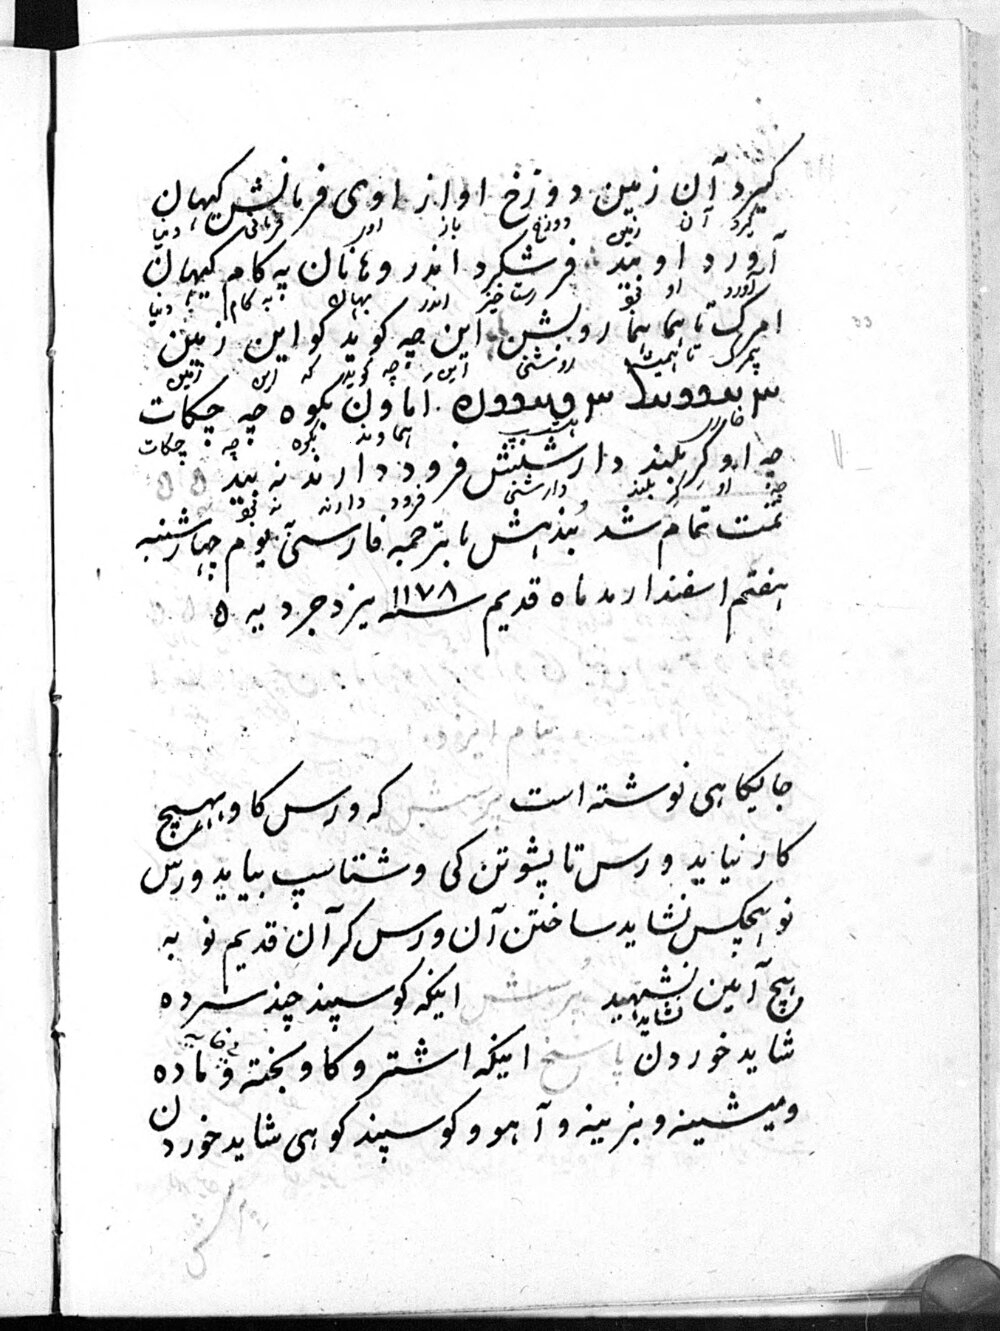 کیرد آن زمین دوزخ اواز اوی فرمانش کیهان
کیرد آن زمین دوزخ باز اور فرمانی دنیا
آورد او بید فرشکرد اندر وهانان په کام کیهان
آورد او رستاخیز اندر بهان به کام دنیا
امرک تا هما هما رویشن این چه کوید کو این زمین
تا همیشه روشنی این چه کوید که این زمین
اماون بکوه چه چکات
هماوند بکوه چه چکات
چه او کر بلند دارشنش فرود دارند نه بید
او کر بلند دارشنی فرود دارند نه
تمت تمام شد بندهش با ترجمه فارسی یوم چهارشنبه
هفتم اسفندارمد ماه قدیم سنه ۱۱۷۸ یزدجردیه ۵
جایکاهی نوشته است پرسش که ورس کاو بهیچ
کار نیاید ورس تا پشوتن کی وشتاسپ بیاید ورس
نو هیچکس نشاید ساختن آن ورس کر آن قدیم نو به
هیچ آیین نشهید پرسش اینکه کوسپند چند سرده
نشاید
شاید خوردن پاسخ اینکه اشتر و کاو بخته و ماده
ومیشینه و بزینه و آهو و کوسپند کوهی شاید خوردن